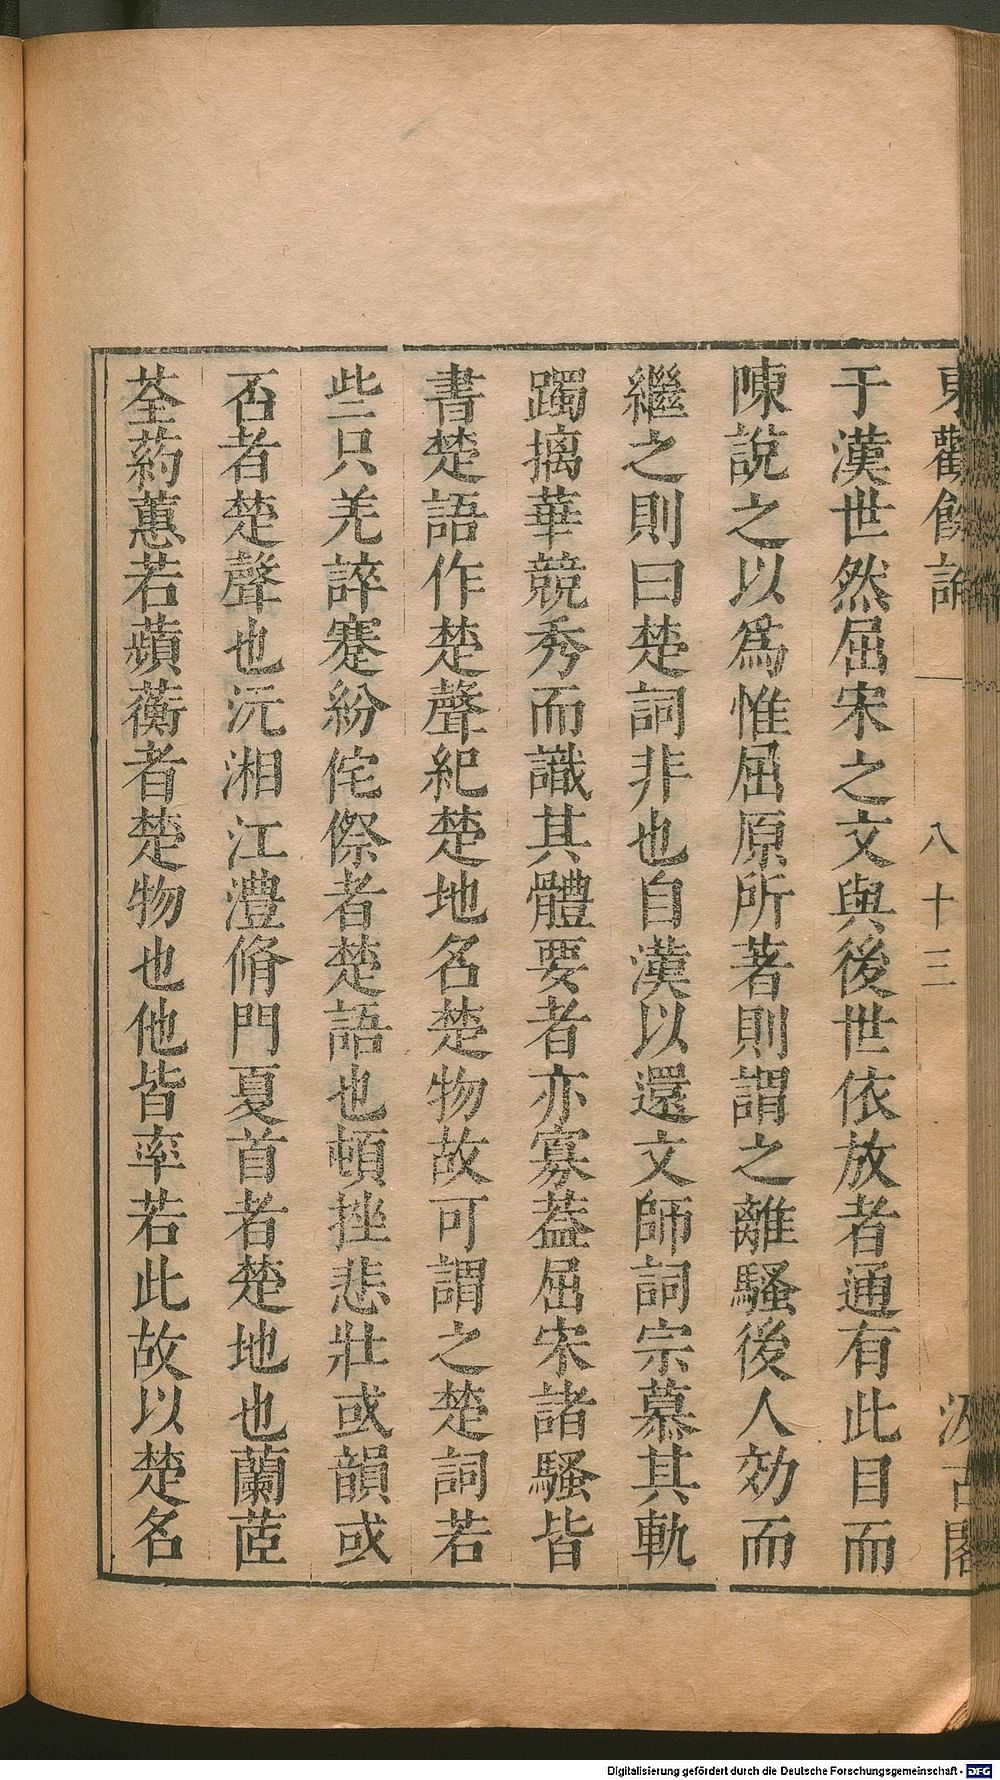 東觀餘論 八十三 汲古閣
于漢世然屈宋之文與後世依放者通有此目而
陳說之以爲惟屈原所著則謂之離騷後人効而
繼之則曰楚詞非也自漢以還文師詞宗慕其軌
躅摛華競秀而識其體要者亦寡葢屈宋諸騷皆
書楚語作楚聲紀楚地名楚物故可謂之楚詞若
些只羌誶蹇紛侘傺者楚語也頓挫悲壯或韻或
否者楚聲也沅湘江澧脩門夏首者楚地也蘭茝
荃葯蕙若蘋蘅者楚物也他皆率若此故以楚名
Digitalisierung gefördert durch die Deutsche Forschungsgemeinschaft - DFG